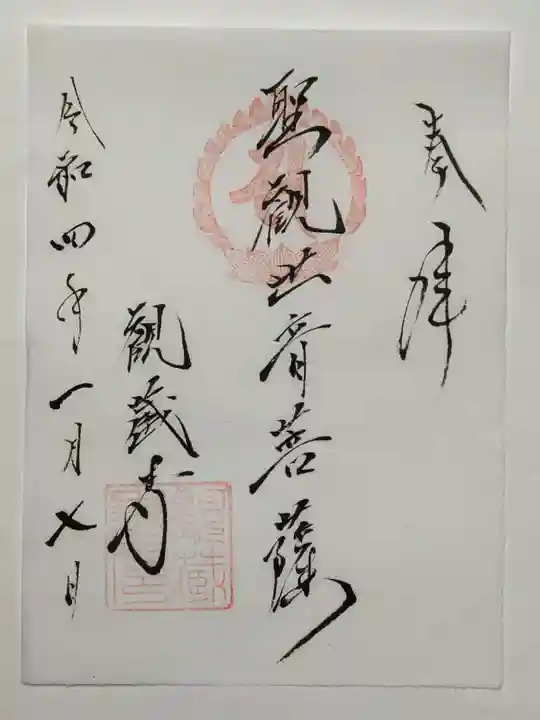 奉拜
聖觀世音菩薩
觀蔵寺
令和四年一月七日